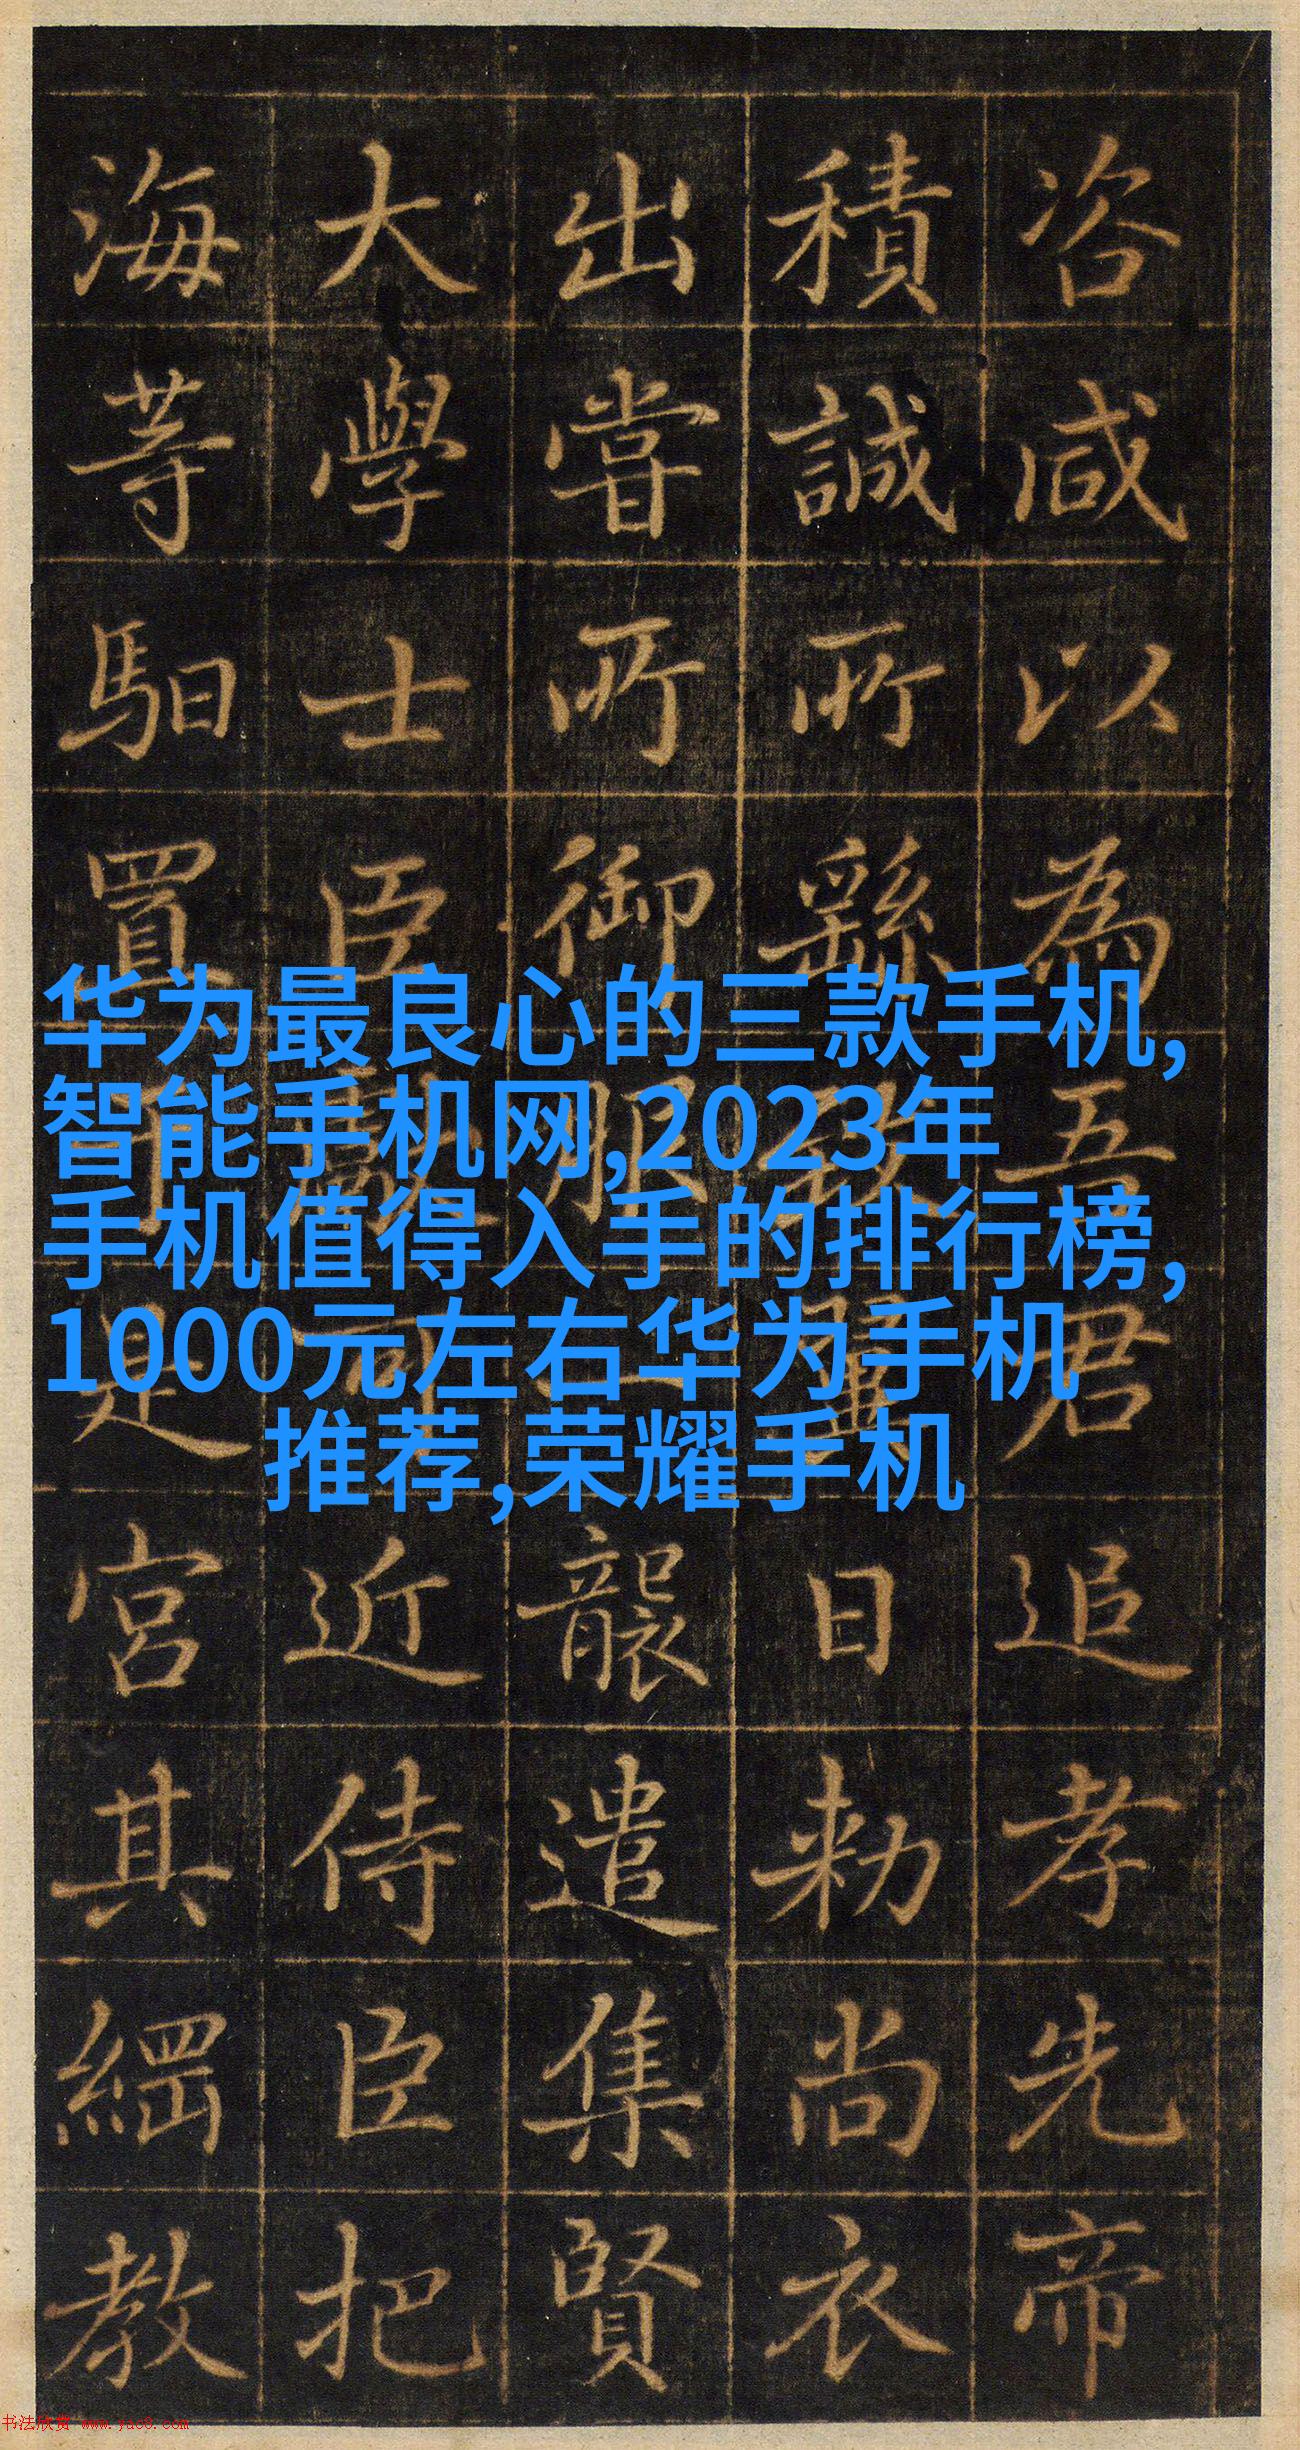 咨咸以為吾君追孝先帝
積誠所繇致日勅尚衣
出嘗所御服一襲遣集賢
大學士臣近侍臣把
海等馹置于是宮其綱教
华为最良心的三款手机,
智能手机网,2023年
手机值得入手的排行榜,
1000元左右华为手机
推荐,荣耀手机
书法欣赏 www.yac8.com